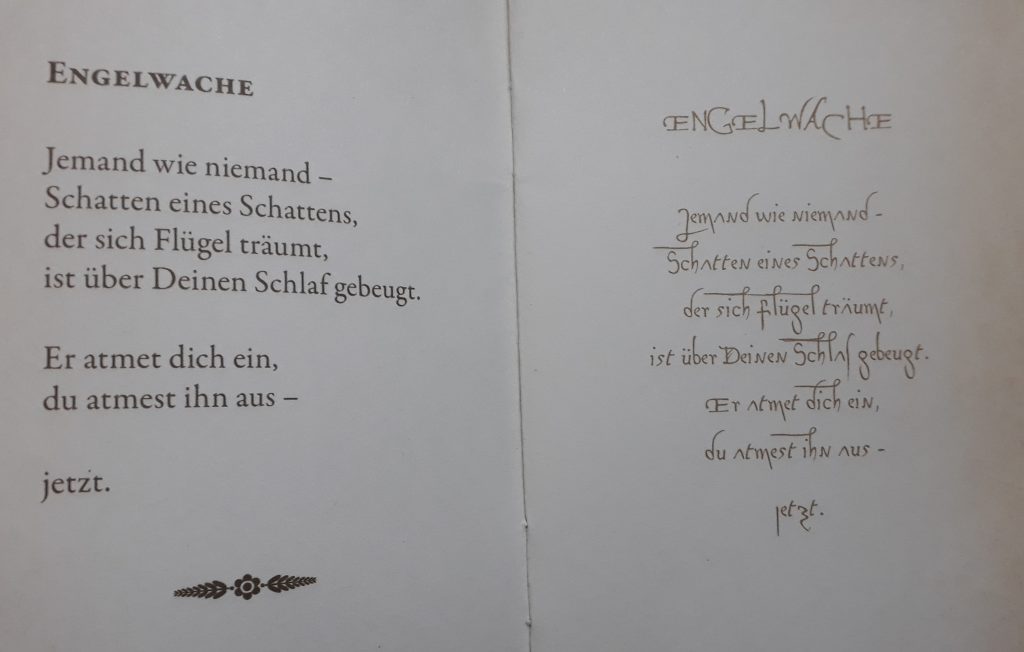 ENGELWACHE
Jemand wie niemand –
Schatten eines Schattens,
der sich Flügel träumt,
ist über Deinen Schlaf gebeugt.
Er atmet dich ein,
du atmest ihn aus –
jetzt.
ENGELWACHE
Jemand wie niemand -
Schatten eines Schattens,
der sich flügel träumt,
ist über Deinen Schlaf gebeugt.
Er atmet dich ein,
du atmest ihn aus -
jetzt.